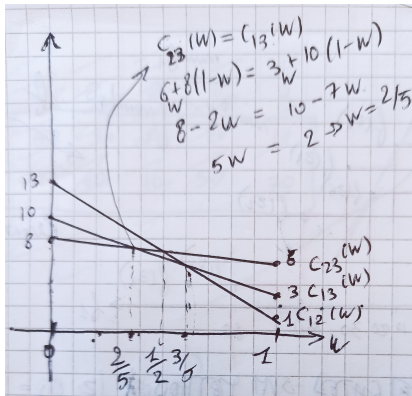 C₂₃(W) = C₁₃(W)
6w+8(1-W) = 3w+10(1-W)
8-2W = 10-7W
5W = 2 → W=2/5
13
10
8
6 C₂₃(W)
3 C₁₃(W)
1 C₁₂(W)
0 2/5 1/2 1 W